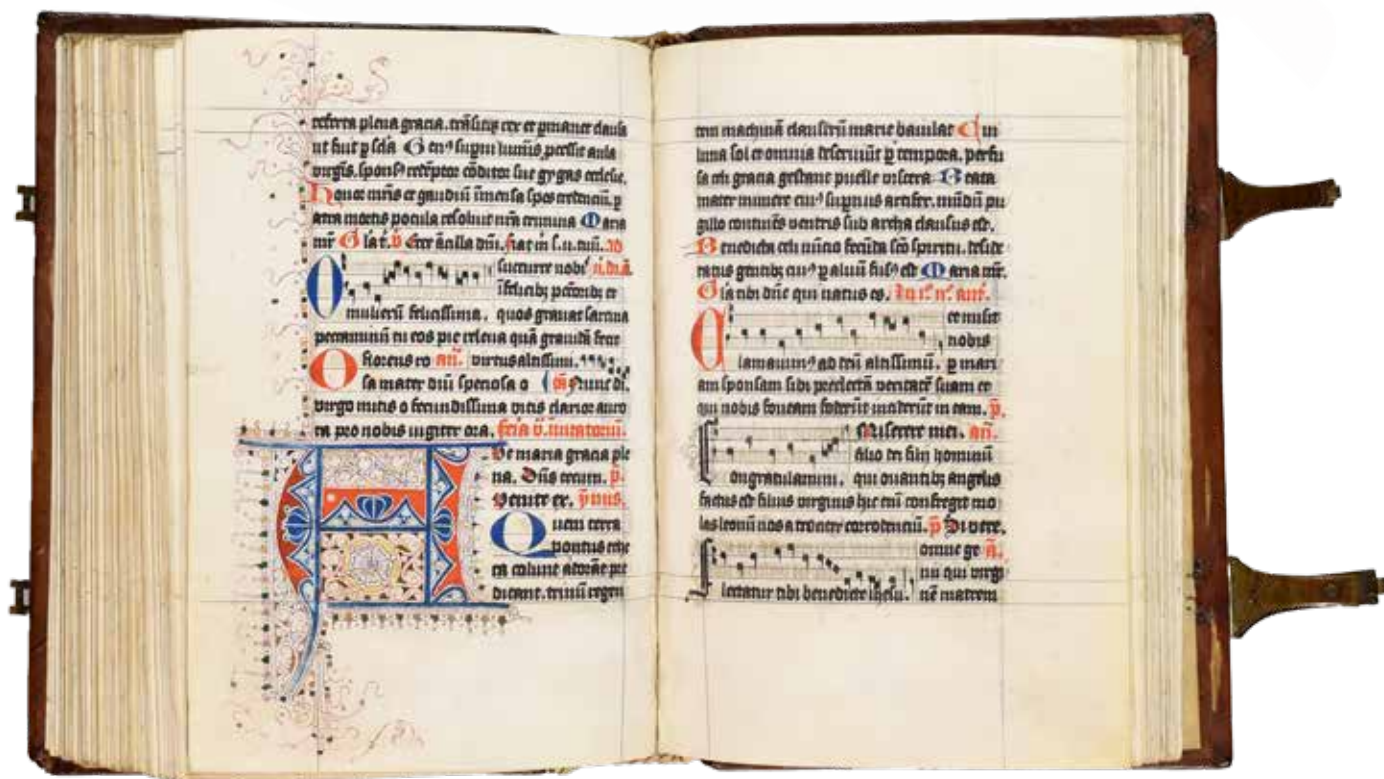 referta plena gracia. trāsitq; rex et pmanet clausa
ut fuit p scła Gen⁹ supm numīs pcessit aula
virgīs. spons⁹ redēptor cōditor sue gygas ecclesie.
Honor mrīs et gaudiū īmensa spes credenciū. p
atra mortis pocula resolvit nrā crimina Maria
mr̄ Gła t. v̄ Ecce ācilla dn̄i. fiat m s. v. tuū. ad
O succurre nobis
īfelicibꝫ peccoribꝫ et
mulierū felicissima. quos gravat sarcina
peccaminū tu eos pie releva quā gravida fecit
O florens ro an̄. virtus altissimi.
sa mater dn̄i speciosa o Nunc di.
virgo mitis o fecundissima vitis clarior auro
ra pro nobis iugiter ora. feria v. invitatoriū.
Ave maria gracia ple
na. Dn̄s tecum. p̄.
Venite ex. ymnus.
Quem terra
pontus ethe
ra colunt adorāt pre
dicant. trinā regen
tem machinā claustrū marie baiulat Cui
luna sol et omnia deserviūt p tempora. perfu
sa celi gracia gestant puelle viscera Beata
mater munere cui⁹ supnus artifex. mūdū pu
gillo continēs ventris sub archa clausus est.
Benedicta celi nūcio fecūda scō spiritu. deside
ratus gentibꝫ cui⁹ p alvū fus⁹ est Maria mr̄.
Gła tibi dn̄e qui natus es. In i⁰ n⁰ ant̄.
C et misit
nobis
lamavim⁹ ad deū altissimū. p mari
am sponsam sibi preelectā veritatē suam et
qui nobis foveam foderūt inciderūt in eam. p̄.
Miserere mei. an̄.
C filio dei filii hominū
ongratulamini. qui ovantibꝫ angelis
factus est filius virginis hic enī confreget mo
las leonū nos atrociter corrodenciū. p̄ Si vere.
L omne ge a̅.
nu qui virgi
lectatur tibi benedicte ihesu. nē matrem